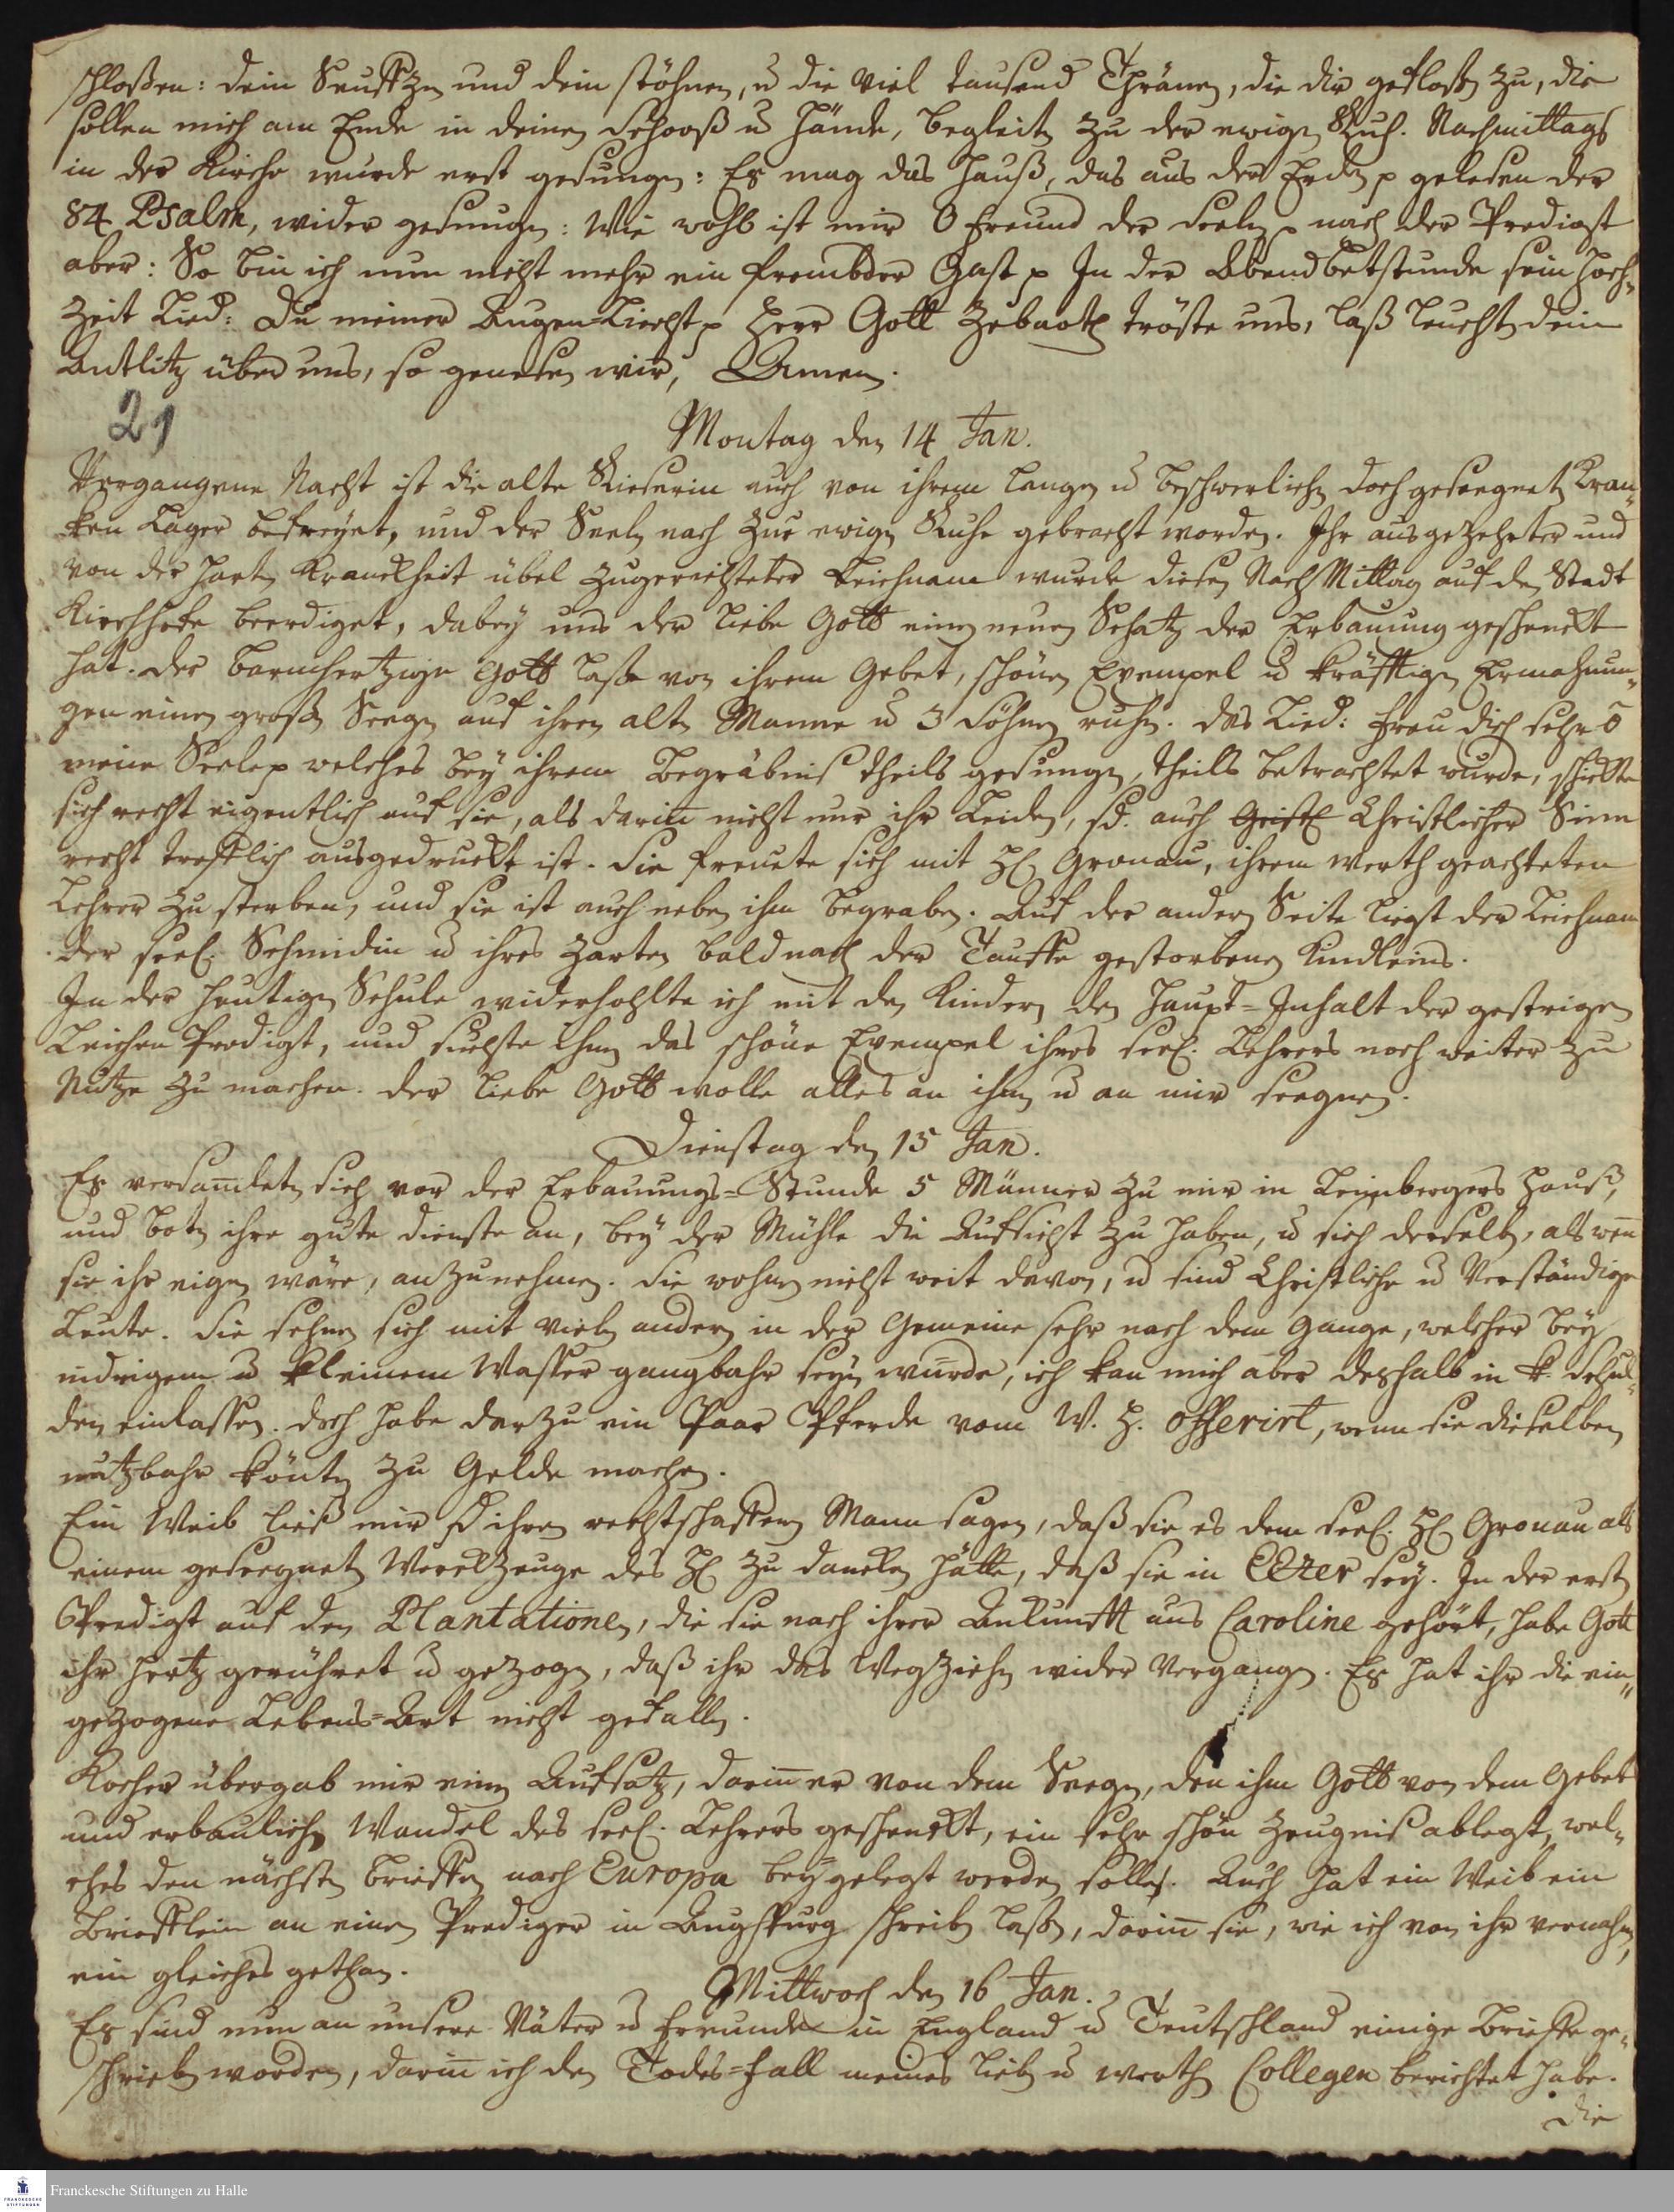 schloßen: dein Seuffzen und dein stöhnen, u die viel tausend Thränen, die dir gefloßen zu, die
sollen mich am Ende in deinen Schooß u Hände, begleiten zu der ewigen Ruh. Nachmittags
in der Kirche wurde erst gesungen: Es mag das Hauß, das aus der Erden p gelesen der
84 Psalm, wider gesungen: Wie wohl ist mir O Freund der Seelen p nach der Predigt
aber: So bin ich nun nicht mehr ein frembder Gast p In der Abendbetstunde sein Hoch-
zeit Lied: Du meiner Augen-Liecht p Herr Gott Zebaoth tröste uns, laß leuchten dein
Antlitz über uns, so genesen wir, Amen.
21
Montag den 14 Jan.
Vergangene Nacht ist die alte Rieserin auch von ihrem langen u beschwerlichen doch geseegneten Kran-
ken Lager befreyet, und der Seelen nach zur ewigen Ruhe gebracht worden. Ihr ausgezehrter und
von der harten Kranckheit übel zugerichteter Leichnam wurde diesen NachMittag auf den Stadt
Kirchhofe beerdiget, dabey uns der liebe Gott einen neuen Schatz der Erbauung geschenckt
hat. Der barmhertzige Gott laße von ihrem Gebet, schönen Exempel u kräfftigen Ermahnun-
gen einen großen Seegen auf ihren alten Manne u 3 Söhnen ruhen. Das Lied: Freu dich sehr o
meine Seele p welches bey ihrem Begräbniß theils gesungen, theils betrachtet wurde, schickte
sich recht eigentlich auf sie, als darin nicht nur ihr Leiden, sd. auch Geistl Christlicher Sinn
recht trefflich ausgedruckt ist. Sie freuete sich mit H Gronau, ihrem werth geachteten
Lehrer zu sterben, und sie ist auch neben ihm begraben. Auf der andern Seite liegt der Leichnam
der seel. Schmidin u ihres zarten bald nach der Tauffe gestorbenen Kindleins.
In der heutigen Schule widerhohlte ich mit den Kindern den Haupt-Inhalt der gestrigen
Leichen Predigt, und suchte ihnen das schöne Exempel ihres seel. Lehrers noch weiter zu
Nutze zu machen. Der liebe Gott wolle alles an ihnen u an mir seegnen.
Dienstag den 15 Jan.
Es versamleten sich vor der Erbauungs-Stunde 5 Männer zu mir in Leimbergers Hauß,
und boten ihre gute dienste an, bey der Mühle die Aufsicht zu haben, u sich derselben, als wen
sie ihr eigen wäre, anzunehmen. Sie wohnen nicht weit davon, u sind Christliche u Verständige
Leute. Sie sehnen sich mit vielen andern in der Gemeine sehr nach dem Gange, welcher bey
nidrigem u kleinem Waßer gangbahr seyn wurde, ich kan mich aber deshalb in k. Schul-
den einlaßen. doch habe darzu ein Paar Pferde vom W. H. offerirt, wenn sie dieselben
nutzbahr könten zu Gelde machen.
Ein Weib ließ mir d ihren rechtschaffenen Mann sagen, daß sie es dem seel. H Gronau als
einem geseegneten Werckzeuge des H zu dancken hätte, daß sie in EbEzer sey. In der ersten
Predigt auf den Plantationen, die sie nach ihrer Ankunfft aus Caroline gehört, habe Gott
ihr Hertz gerühret u gezogen, daß ihr das Wegziehen wider vergangen. Es hat ihr die ein-
gezogene Lebens-Art nicht gefallen.
Kocher übergab mir einen Aufsatz, darin er von dem Seegen, den ihm Gott von dem Gebet
und erbaulichen Wandel des seel. Lehrers geschenckt, ein sehr schön Zeugniß ablegt, wel-
ches den nächsten Brieffen nach Europa beygelegt werden solle. Auch hat ein Weib ein
Briefflein an einen Prediger in Augspurg schreiben laßen, darin sie, wie ich von ihr vernahm,
ein gleiches gethan.
Mittwoch den 16 Jan.
Es sind nun an unsere Väter u Freunde in England u Teutschland einige Brieffe ge-
schrieben worden, darin ich den Todes-Fall meines lieben u werthen Collegen berichtet habe.
die
Franckesche Stiftungen zu Halle